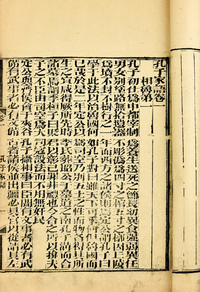 孔子家語卷一
相魯第一
孔子初仕為中都宰制為養生送死之節長幼異食強弱異任
男女別塗路無拾遺器不彫偽為四寸之棺五寸之槨因丘陵
為墳不封不樹行之一年而西方之諸侯則焉定公謂孔子曰
學子此法以治魯國何如孔子對曰雖天下可乎何但魯國而
已哉於是二年定公以為司空乃別五土之性而物各得其所
生之宜咸得厥所先時季氏葬昭公于墓道之南孔子溝而合
諸墓焉謂季桓子曰貶君以彰己罪非禮也今合之所以揜夫
子之不臣由司空為魯大司寇設法而不用無姦民
定公與齊侯會于夾谷孔子攝相事曰臣聞有文事者必有武
備有武事者必有文備古者諸侯並出疆必具官以從請具左
孔子家語